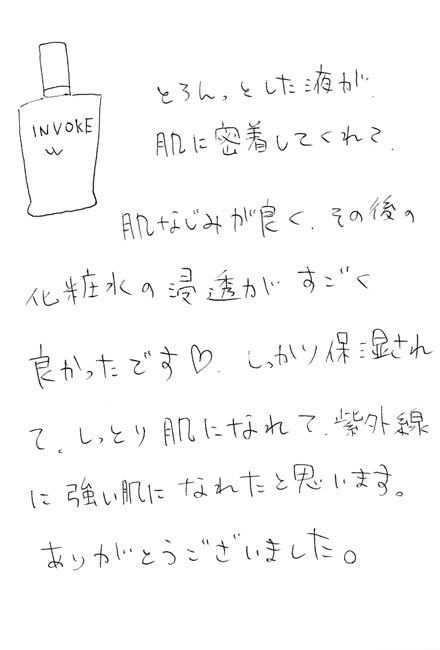 INVOKE
W
とろんっとした液が、
肌に密着してくれて、
肌なじみが良く、その後の
化粧水の浸透がすごく
良かったです♡、しっかり保湿され
て、しっとり肌になれて、紫外線
に強い肌になれたと思います。
ありがとうございました。